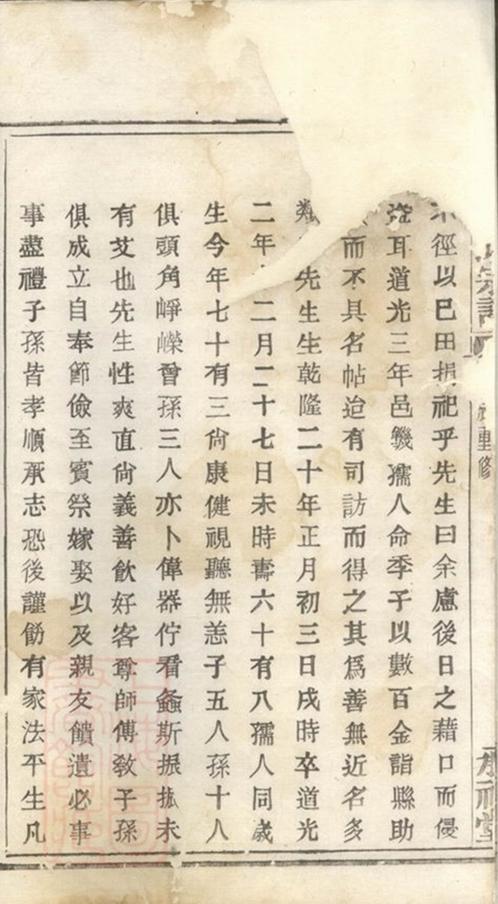 重修
祠堂
徑以巳田捐祀乎先生曰余慮後日之藉口而侵
耳道光三年邑饑孺人命季子以數百金詣縣助
而不具名帖迨有司訪而得之其爲善無近名多
類先生生乾隆二十年正月初三日戌時卒道光
二年二月二十七日未時壽六十有八孺人同歲
生今年七十有三尙康健視聽無恙子五人孫十人
俱頭角崢嶸曾孫三人亦卜偉器佇看螽斯振振未
有艾也先生性爽直尙義善飮好客尊師傅敎子孫
俱成立自奉節儉至賓祭嫁娶以及親友饋遺必事
事盡禮子孫皆孝順承志恐後謹飭有家法平生凡